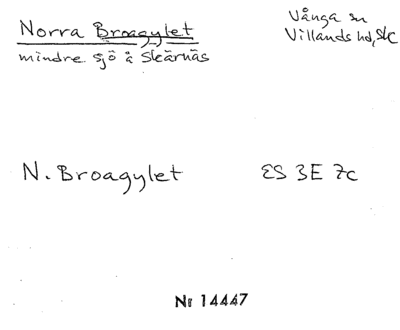 Norra Broagylet
Vånga sn
Villands hd, Skåne
mindre sjö å Skärnäs
N. Broagylet
ES 3E 7c
Nº 14447